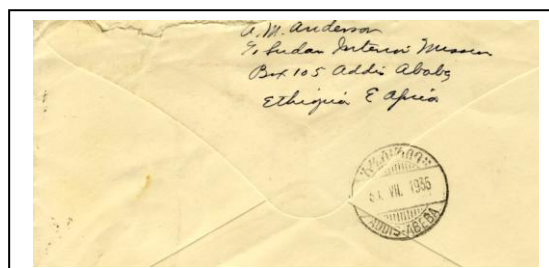 A. M. Anderson
℅ Sudan Interior Mission
Box 105 Addis Ababa
Ethiopia E Africa
VII. 1935
ADDIS-ABEBA